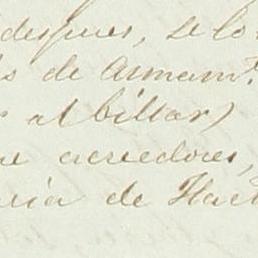 despues, se lo
s de Armamto.
al billar)
ue acreedores,
cia de Hac